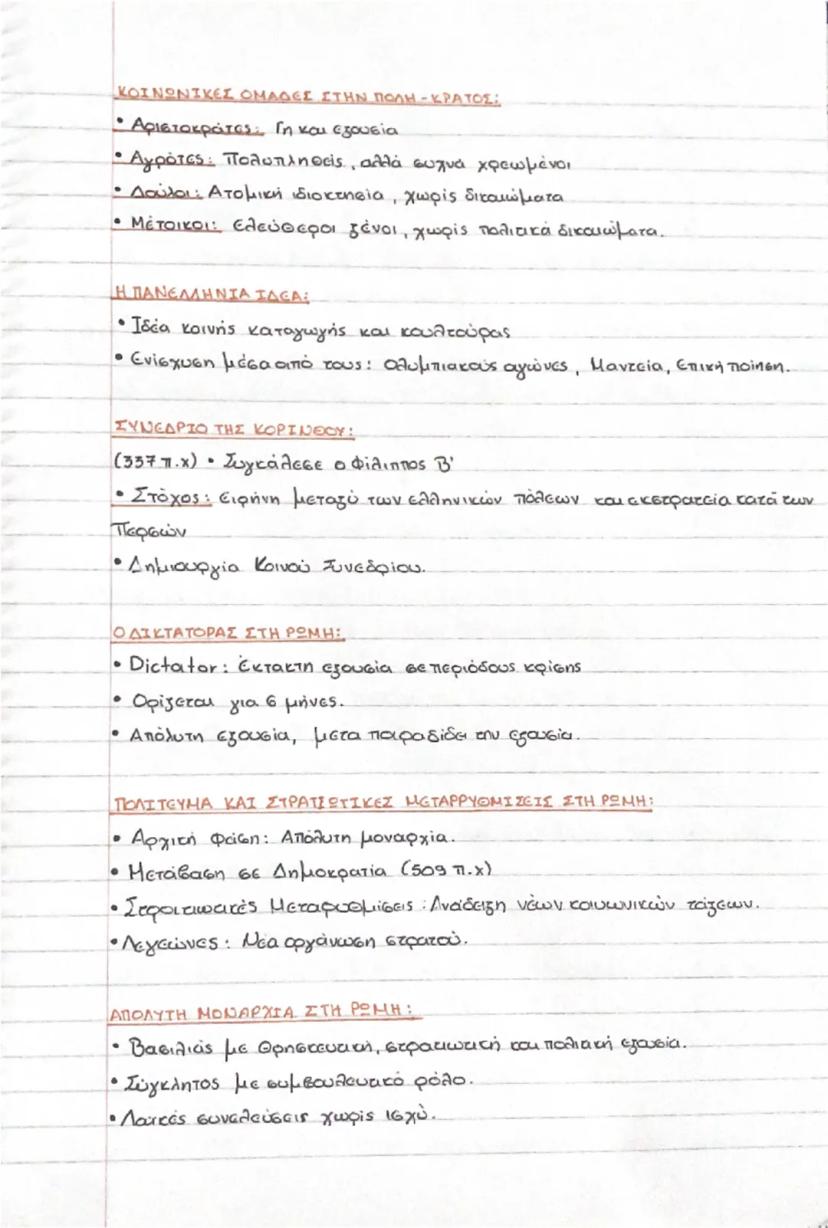 ΚΟΙΝΩΝΙΚΕΣ ΟΜΑΔΕΣ ΣΤΗΝ ΠΟΛΗ - ΚΡΑΤΟΣ:
• Αριστοκράτες: Γη και εξουσία
• Αγρότες: Πολυπληθείς, αλλά συχνά χρεωμένοι
• Δούλοι: Ατομική ιδιοκτησία, χωρίς δικαιώματα
• Μέτοικοι: Ελεύθεροι ξένοι, χωρίς πολιτικά δικαιώματα.
Η ΠΑΝΕΛΛΗΝΙΑ ΙΔΕΑ:
• Ιδέα κοινής καταγωγής και κουλτούρας
• Ενίσχυση μέσα από τους: Ολυμπιακούς αγώνες, Μαντεία, Επική ποίηση.
ΣΥΝΕΔΡΙΟ ΤΗΣ ΚΟΡΙΝΘΟΥ:
(337 π.χ) • Συγκάλεσε ο Φίλιππος Β'
• Στόχος: Ειρήνη μεταξύ των ελληνικών πόλεων και εκστρατεία κατά των
Περσών
• Δημιουργία Κοινού Συνεδρίου.
Ο ΔΙΚΤΑΤΟΡΑΣ ΣΤΗ ΡΩΜΗ:
• Dictator: Έκτακτη εξουσία σε περιόδους κρίσης
• Ορίζεται για 6 μήνες.
• Απόλυτη εξουσία, μετα παραδίδει την εξουσία.
ΠΟΛΙΤΕΥΜΑ ΚΑΙ ΣΤΡΑΤΙΩΤΙΚΕΣ ΜΕΤΑΡΡΥΘΜΙΣΕΙΣ ΣΤΗ ΡΩΜΗ:
• Αρχική Φάση: Απόλυτη μοναρχία.
• Μετάβαση σε Δημοκρατία (509 π.χ)
• Στρατιωτικές Μεταρυθμίσεις: Ανάδειξη νέων κοινωνικών τάξεων.
• Λεγεώνες: Νέα οργάνωση στρατού.
ΑΠΟΛΥΤΗ ΜΟΝΑΡΧΙΑ ΣΤΗ ΡΩΜΗ:
• Βασιλιάς με θρησκευτική, στρατιωτική και πολιτική εξουσία.
• Σύγκλητος με συμβουλευτικό ρόλο.
• Λαϊκές συνελεύσεις χωρίς ισχύ.